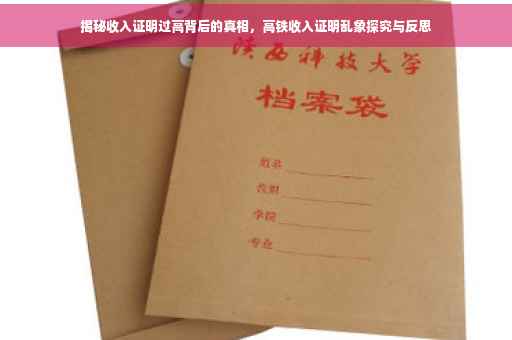 揭秘收入证明过高背后的真相，高铁收入证明乱象探究与反思
陕西科技大学
档案袋
姓名
学院
专业